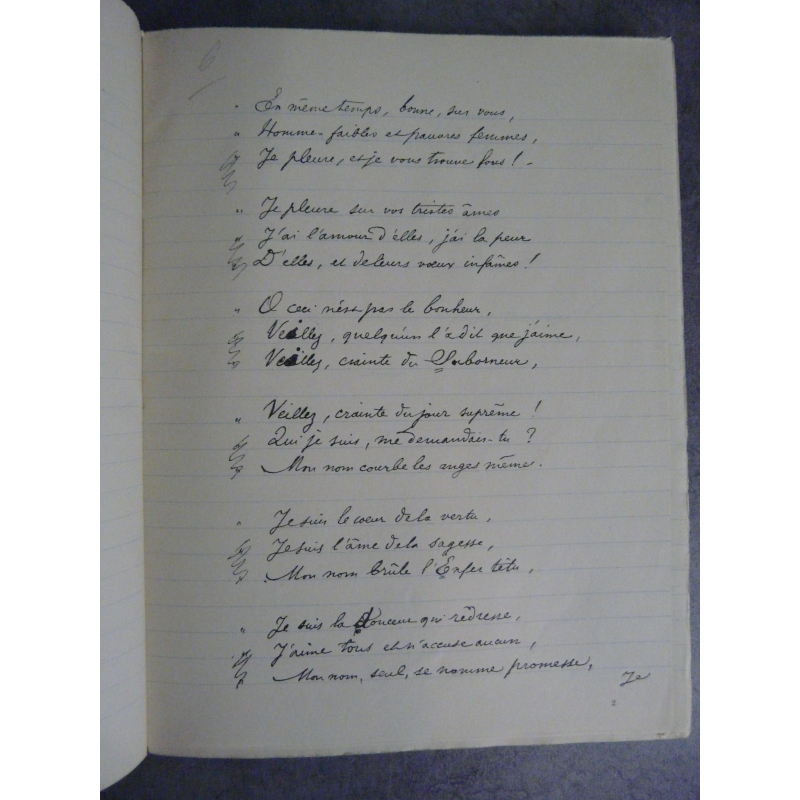 6
" En même temps, bonne, sur vous,
" Homme-faibles et pauvres femmes,
Je pleure, et je vous trouve fous ! -
" Je pleure sur vos tristes âmes
J'ai l'amour d'elles, j'ai la peur
D'elles, et de leurs vœux infâmes !
" O ceci n'est pas le bonheur,
Veillez, quelqu'un l'a dit que j'aime,
Veillez, crainte du Suborneur,
" Veillez, crainte du jour suprême !
Qui je suis, me demandais-tu ?
Mon nom courbe les anges même.
" Je suis le cœur de la vertu,
Je suis l'âme de la sagesse,
Mon nom brûle l'Enfer têtu,
" Je suis la douceur qui redresse,
J'aime tous et n'accuse aucun,
Mon nom, seul, se nomme promesse,
Je
2